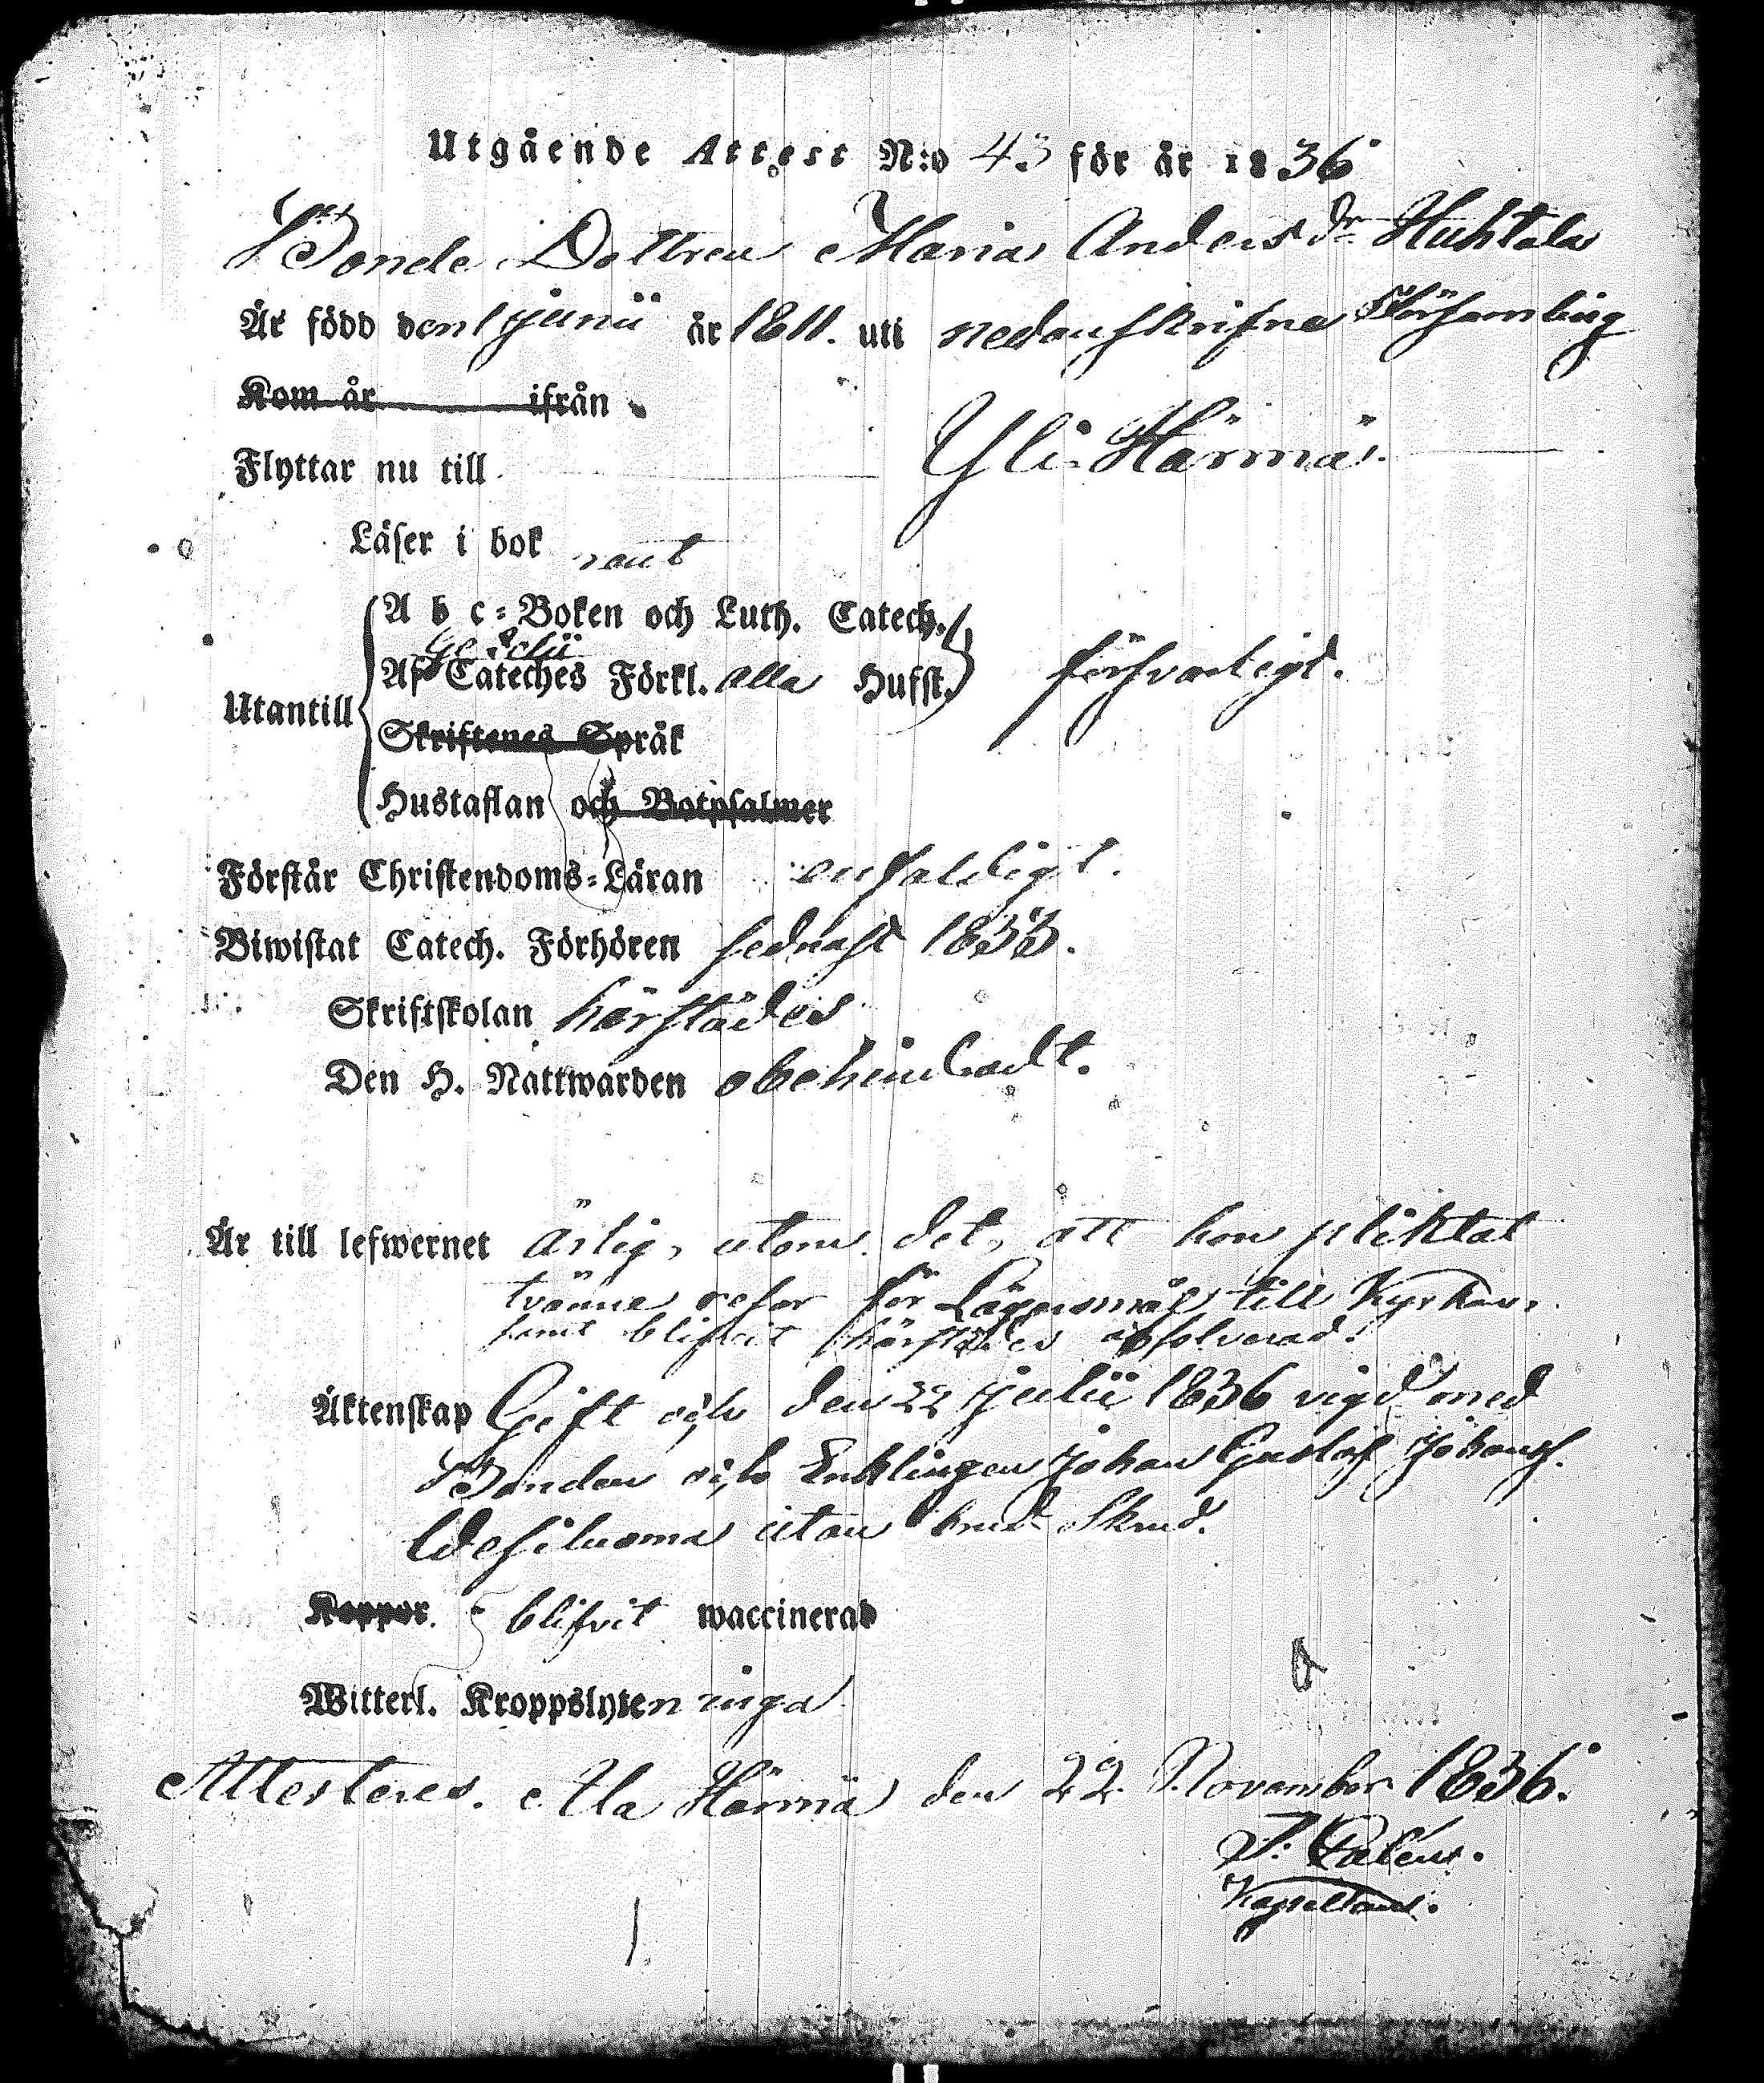 Utgående Attest N:o 43 för år 1836
Bonde Dottren Maria Andersdr Huhtala
Är född den 1 Junii år 1811. uti nedanskrifne Församling
Kom år ifrån
Flyttar nu till Yli-Härmä.
Läser i bok rent
A b c-Boken och Luth. Catech.
Af Cateches Förkl. alla Hufst. försvarligt.
Utantill
Skriftenes Språk
Hustaflan och Botpsalmer
Förstår Christendoms-Läran enfaldigt.
Biwistat Catech. Förhören sednast 1833.
Skriftskolan härstädes
Den H. Nattwarden obehindradt.
Är till lefwernet ärlig, utom det, att hon pliktat
tvänne resor för Lägersmål till Kyrkan,
samt blifvit härstädes absolverad.
Äktenskap Gift och den 22 Julii 1836 vigd med
Bonden och Enklingen Johan Gustaf Johanss.
utan brud Skrud.
Koppor. blifvit waccinerad
Witterl. Kroppslyten inga
Attesteres. Ala Härmä den 22 November 1836.
Kapellan.
1.